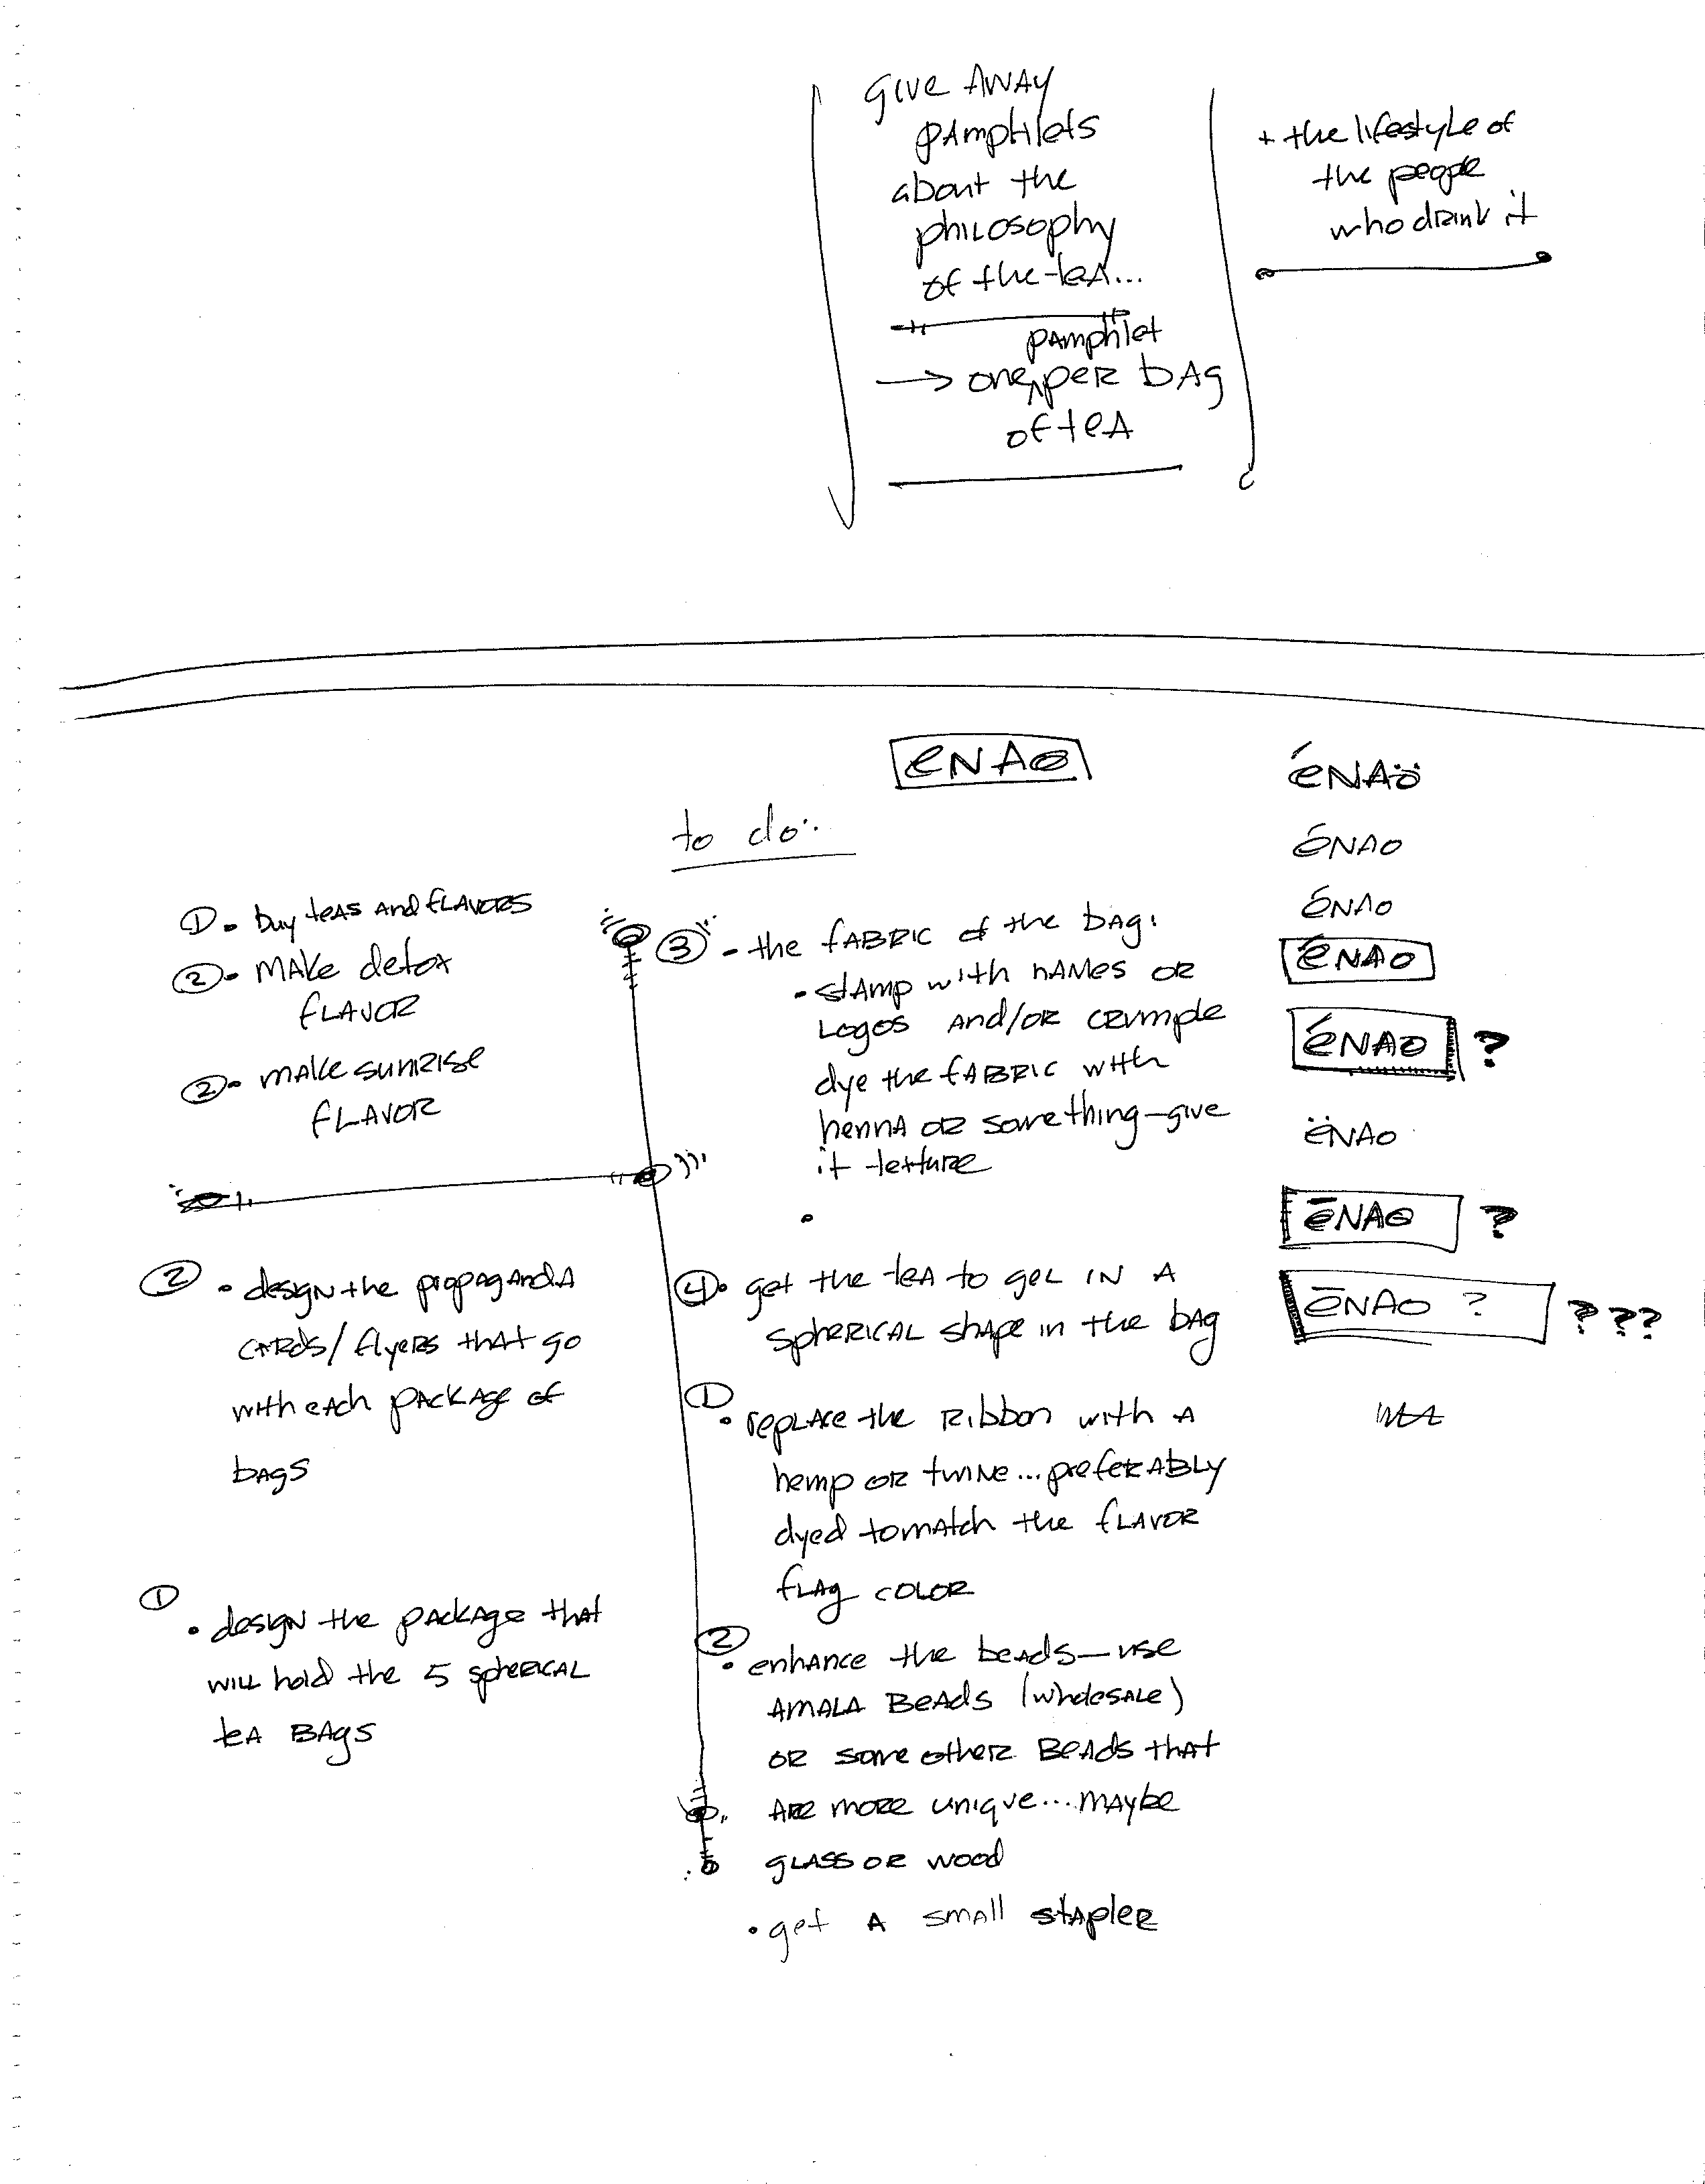 give AWAY
pamphlets
about the
philosophy
of the teA...
pamphlet
→ one^per bAg
of teA
+ the lifestyle of
the people
who drink it
eNAO
to do:
① • buy teAs and flavors
② • make detox
flavor
② • make sunrise
flavor
② • design the propaganda
cards/flyers that go
with each package of
bags
① • design the package that
will hold the 5 spherical
tea bags
③ - the fabric of the bag:
• stamp with names or
logos and/or crumple
dye the fabric with
henna or something—give
it texture
•
④ • get the tea to gel in a
spherical shape in the bag
① • replace the ribbon with a
hemp or twine...preferably
dyed to match the flavor
flag color
② • enhance the beads—use
AMALA Beads (wholesale)
or some other Beads that
are more unique...maybe
glass or wood
• get a small stapler
éNAÖ
éNAO
éNAO
éNAO
éNAO ?
ëNAO
ēNAO ?
ēNAO ? ???